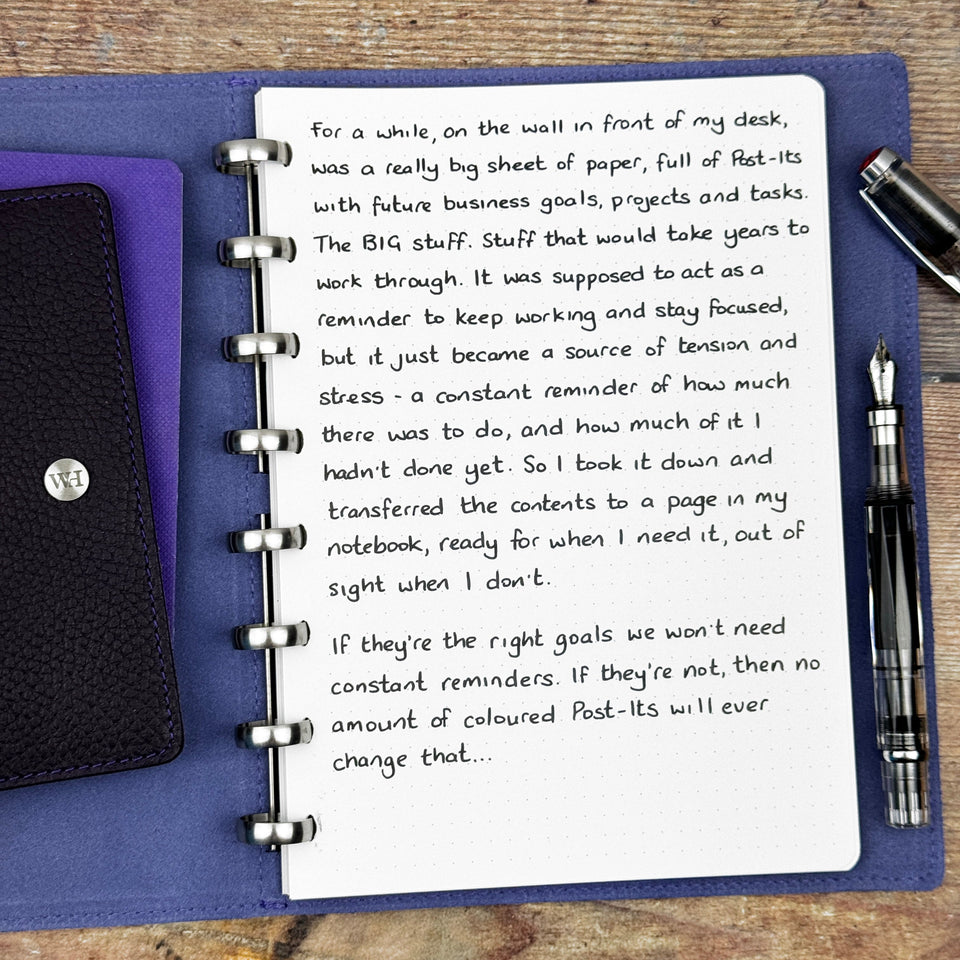 For a while, on the wall in front of my desk,
was a really big sheet of paper, full of Post-Its
with future business goals, projects and tasks.
The BIG stuff. Stuff that would take years to
work through. It was supposed to act as a
reminder to keep working and stay focused,
but it just became a source of tension and
stress - a constant reminder of how much
there was to do, and how much of it I
hadn't done yet. So I took it down and
transferred the contents to a page in my
notebook, ready for when I need it, out of
sight when I don't.
If they're the right goals we won't need
constant reminders. If they're not, then no
amount of coloured Post-Its will ever
change that...
WH